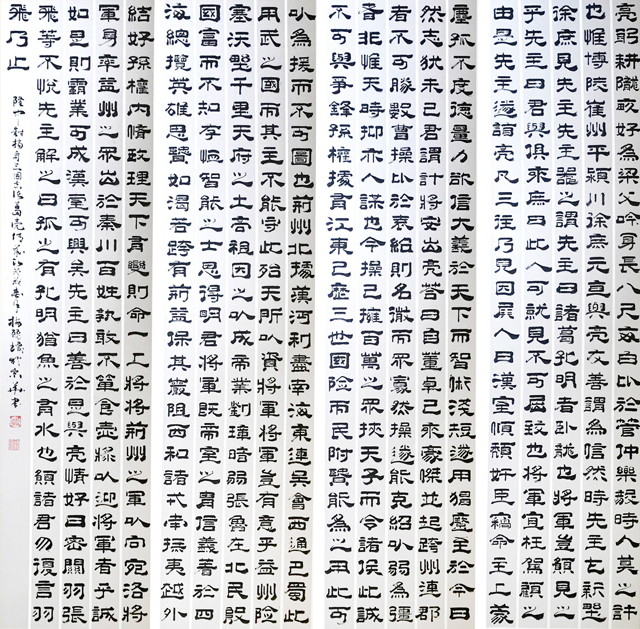 亮躬耕隴畝好為梁父吟身長八尺每自比於管仲樂毅時人莫之許
也惟博陵崔州平潁川徐庶元直與亮友善謂為信然時先主屯新野
徐庶見先主先主器之謂先主曰諸葛孔明者臥龍也將軍豈願見之
乎先主曰君與俱來庶曰此人可就見不可屈致也將軍宜枉駕顧之
由是先主遂詣亮凡三往乃見因屏人曰漢室傾頹奸臣竊命主上蒙
塵孤不度德量力欲信大義於天下而智術淺短遂用猖蹶至於今日
然志猶未已君謂計將安出亮答曰自董卓已來豪傑並起跨州連郡
者不可勝數曹操比於袁紹則名微而眾寡然操遂能克紹以弱為強
者非惟天時抑亦人謀也今操已擁百萬之眾挾天子而令諸侯此誠
不可與爭鋒孫權據有江東已歷三世國險而民附賢能為之用此可
以為援而不可圖也荊州北據漢沔利盡南海東連吳會西通巴蜀此
用武之國而其主不能守此殆天所以資將軍將軍豈有意乎益州險
塞沃野千里天府之土高祖因之以成帝業劉璋暗弱張魯在北民殷
國富而不知存恤智能之士思得明君將軍既帝室之冑信義著於四
海總攬英雄思賢如渴若跨有荊益保其巖阻西和諸戎南撫夷越外
結好孫權內脩政理天下有變則命一上將將荊州之軍以向宛洛將
軍身率益州之眾出於秦川百姓孰敢不簞食壺漿以迎將軍者乎誠
如是則霸業可成漢室可興矣先主曰善於是與亮情好日密關羽張
飛等不悅先主解之曰孤之有孔明猶魚之有水也願諸君勿復言羽
飛乃止
隆中對摘自三國志諸葛亮